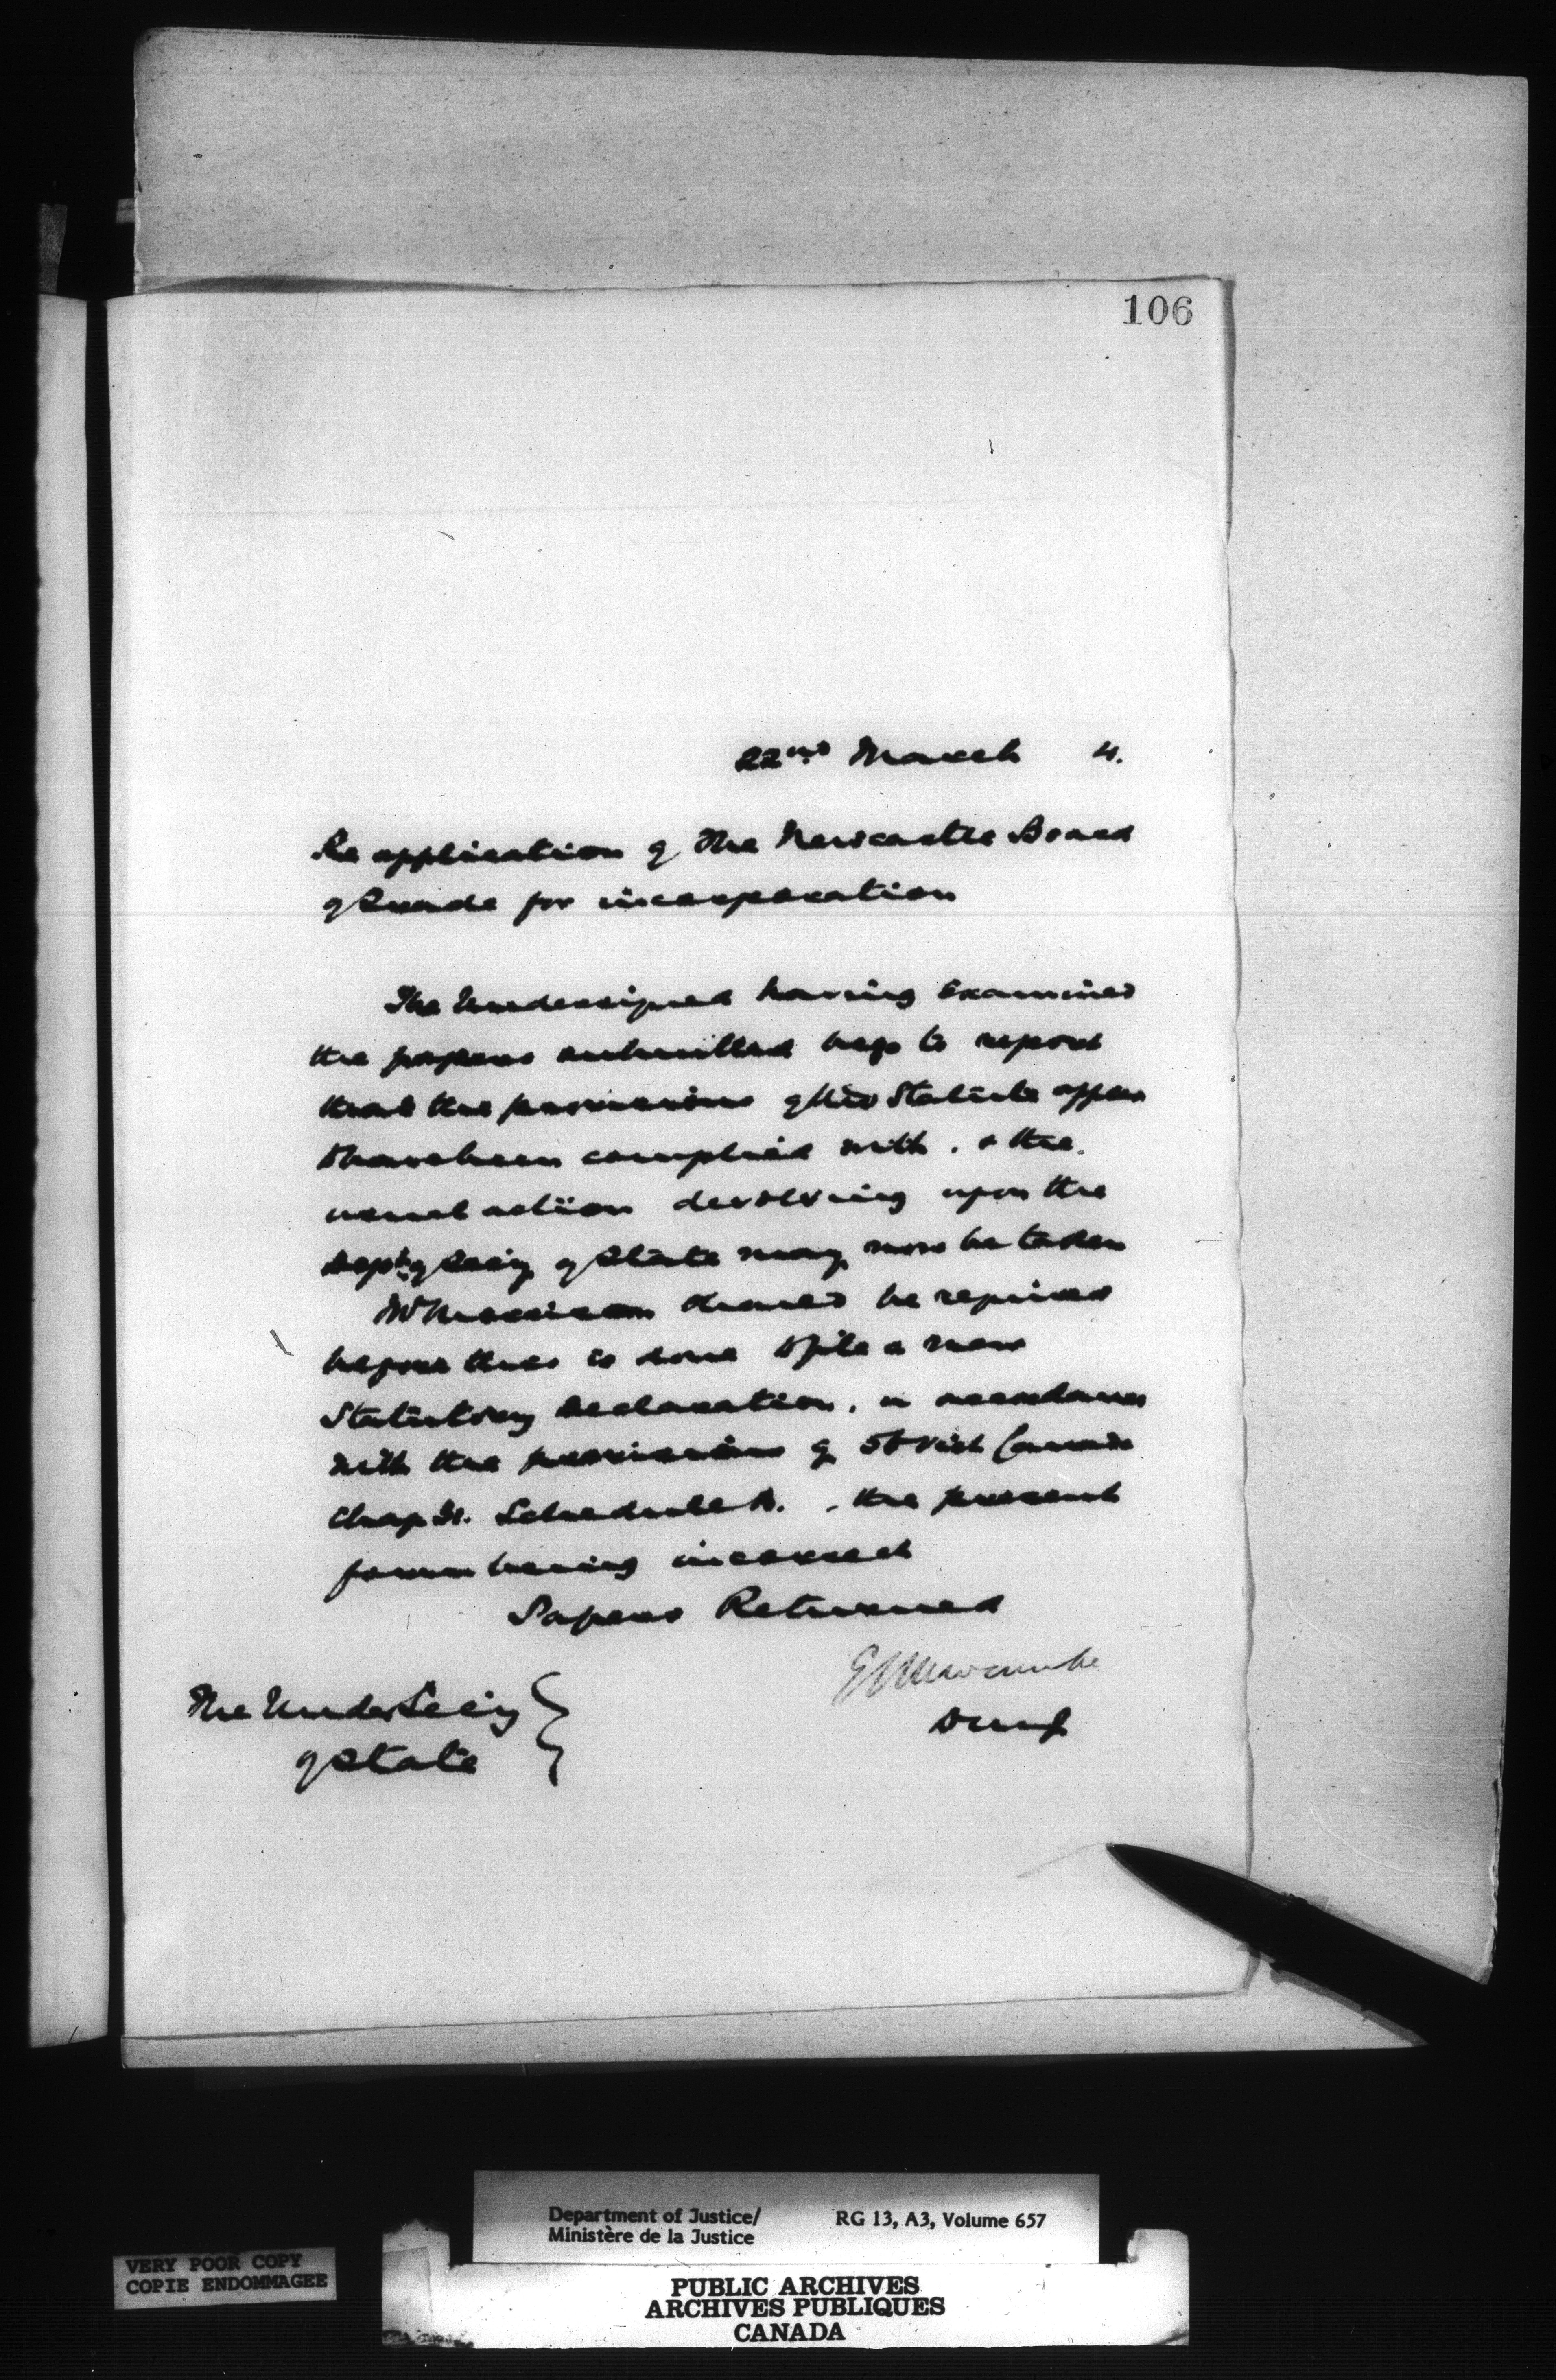 106
22nd March 4.
Re application of The Newcastle Board
of Trade for incorporation
The Undersigned having examined
the papers submitted begs to report
that the provisions of the Statute appear
to have been complied with, & the
usual action devolving upon the
Depty Secy of State may now be taken
Mr Morrison should be required
before this is done to file a new
Statutory Declaration, in accordance
with the provisions of 56 Vict Canada
Chap 31. Schedule A., the present
form being incorrect
Papers Returned
E L Newcombe
DMJ
The Under Secy
of State
Department of Justice/
Ministère de la Justice
RG 13, A3, Volume 657
VERY POOR COPY
COPIE ENDOMMAGEE
PUBLIC ARCHIVES
ARCHIVES PUBLIQUES
CANADA